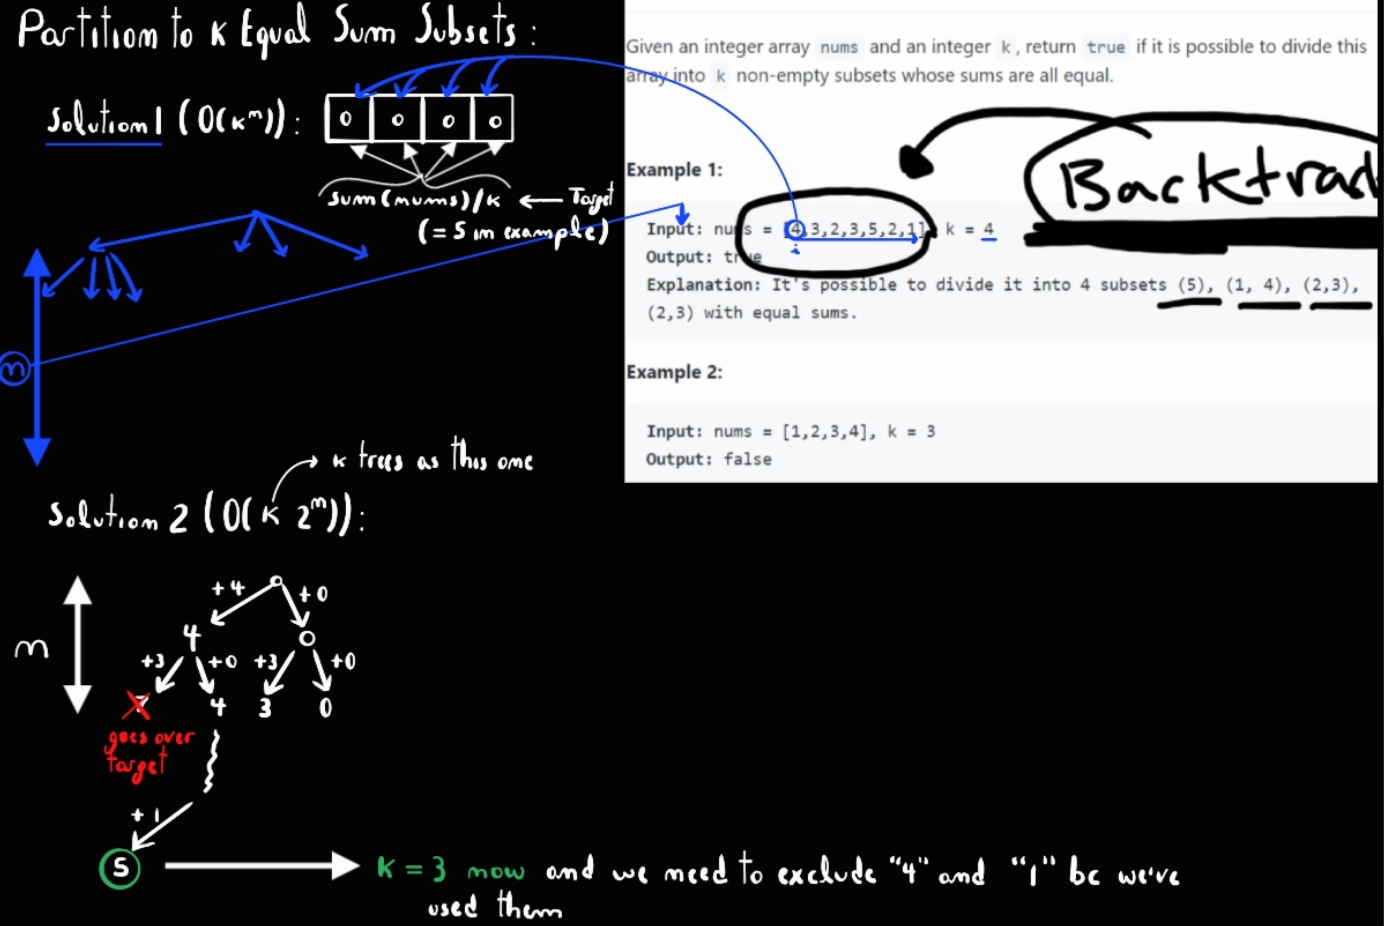 Partition to K Equal Sum Subsets:
Solution 1 (O(kⁿ)):
0 0 0 0
Sum(nums)/k ← Target
(= 5 in example)
n
Given an integer array nums and an integer k, return true if it is possible to divide this
array into k non-empty subsets whose sums are all equal.
Backtrac
Example 1:
Input: nums = [4,3,2,3,5,2,1], k = 4
i
Output: true
Explanation: It's possible to divide it into 4 subsets (5), (1, 4), (2,3),
(2,3) with equal sums.
Example 2:
Input: nums = [1,2,3,4], k = 3
Output: false
k trees as this one
Solution 2 (O(k 2ⁿ)):
0
+4 +0
n
4 0
+3 +0 +3 +0
7 4 3 0
goes over
target
+1
5
K = 3 now and we need to exclude "4" and "1" bc we've
used them